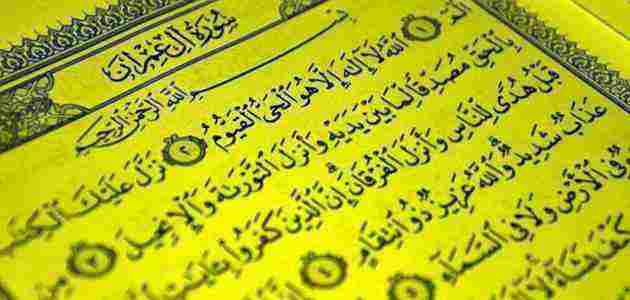 سُورَةُ آلِ عِمْرَانَ
بِسْمِ اللَّهِ الرَّحْمَنِ الرَّحِيمِ
الٓمٓ ١ اللَّهُ لَا إِلَهَ إِلَّا هُوَ الْحَيُّ الْقَيُّومُ ٢ نَزَّلَ عَلَيْكَ الْكِتَبَ
بِالْحَقِّ مُصَدِّقًا لِمَا بَيْنَ يَدَيْهِ وَأَنزَلَ التَّوْرَىةَ وَالْإِنجِيلَ ٣ مِن
قَبْلُ هُدًى لِلنَّاسِ وَأَنزَلَ الْفُرْقَانَ إِنَّ الَّذِينَ كَفَرُوا بِـَٔايَتِ
عَذَابٌ شَدِيدٌ وَاللَّهُ عَزِيزٌ ذُو انتِقَامٍ ٤
فِي الْأَرْضِ وَلَا فِي السَّمَاءِ ٥
كَيْفَ يَشَاءُ لَا